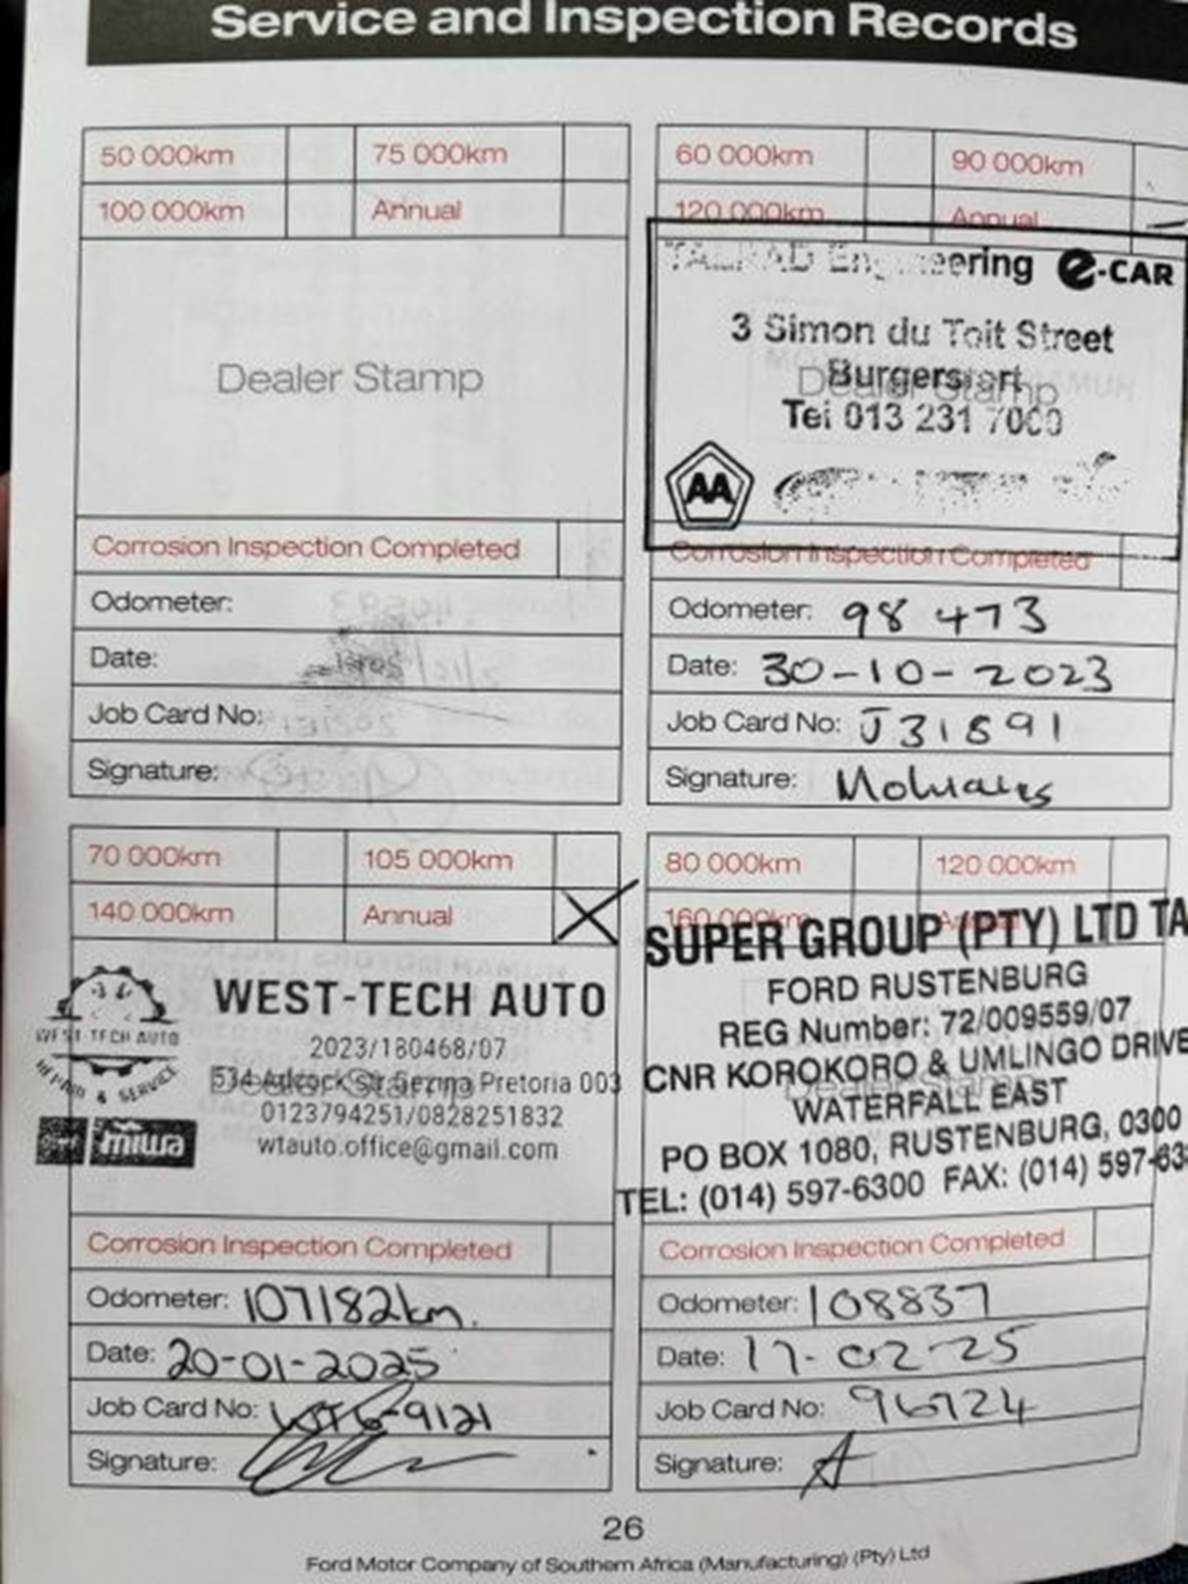 Service and Inspection Records
50 000km 75 000km
100 000km Annual
Dealer Stamp
Corrosion Inspection Completed
Odometer:
Date:
Job Card No:
Signature:
60 000km 90 000km
120 000km Annual
Engineering e-CAR
3 Simon du Toit Street
Dealer Stamp
Tel 013 231 7000
AA
Corrosion Inspection Completed
Odometer: 98 473
Date: 30-10-2023
Job Card No: J31891
Signature:
70 000km 105 000km
140 000km Annual X
WEST-TECH AUTO
WEST-TECH AUTO
REPAIR & SERVICE
2023/180468/07
534 Adcock Str Gezina Pretoria 003
Dealer Stamp
0123794251/0828251832
wtauto.office@gmail.com
miwa
Corrosion Inspection Completed
Odometer: 107182km.
Date: 20-01-2025
Job Card No:
Signature:
80 000km 120 000km
160 000km Annual
SUPER GROUP (PTY) LTD TA
FORD RUSTENBURG
REG Number: 72/009559/07
CNR KOROKORO & UMLINGO DRIVE
Dealer Stamp
WATERFALL EAST
PO BOX 1080, RUSTENBURG, 0300
TEL: (014) 597-6300 FAX: (014) 597-63
Corrosion Inspection Completed
Odometer: 108837
Date: 17-02-25
Job Card No: 96724
Signature:
26
Ford Motor Company of Southern Africa (Manufacturing) (Pty) Ltd